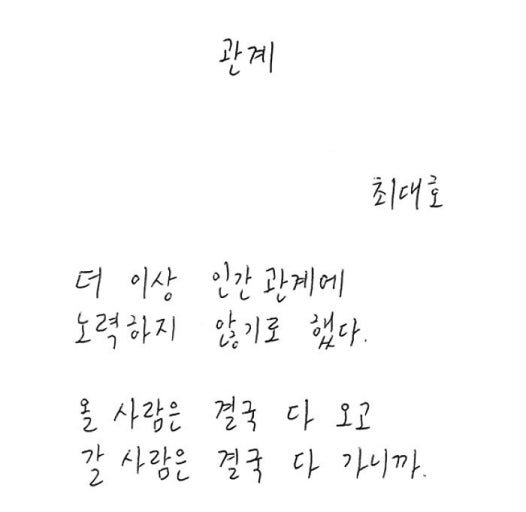 관계
최대호
더 이상 인간관계에
노력하지 않기로 했다.
올 사람은 결국 다 오고
갈 사람은 결국 다 가니까.